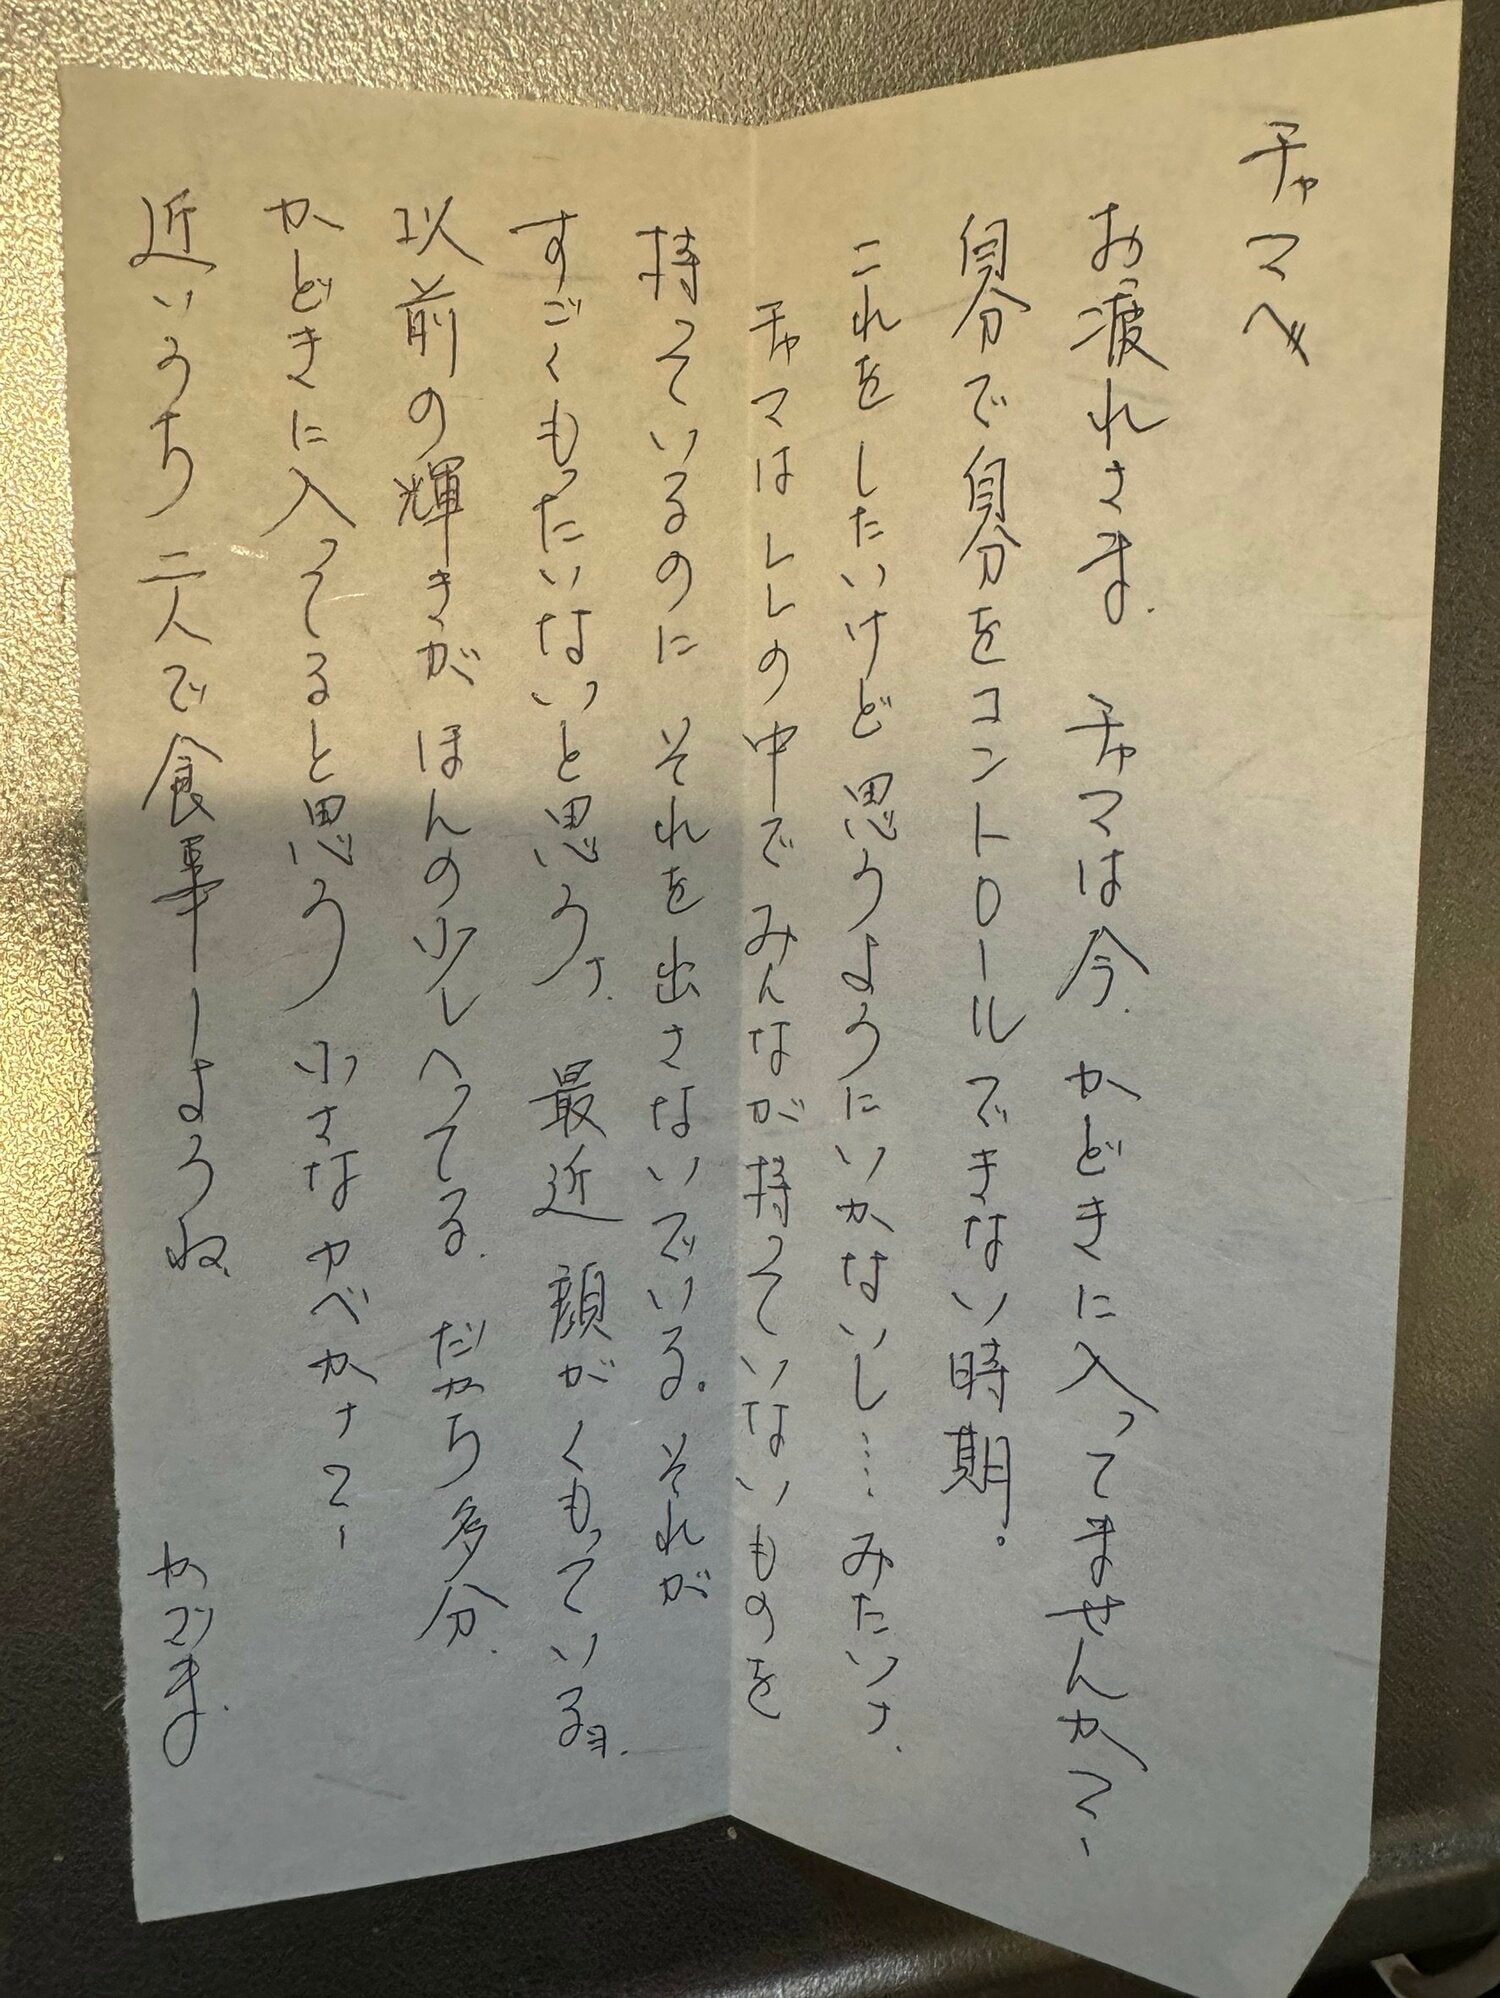 チャマへ
お疲れさま. チャマは今. かどきに入ってませんかマー
自分で自分をコントロールできない時期。
これをしたいけど思うようにいかないし…みたいナ.
チャマはレレの中でみんなが持っていないものを
持っているのに それを出さないでいる。それが
すごくもったいないと思うナ. 最近 顔がくもっているヨ.
以前の輝きがほんの少しへってる. だから多分.
かどきに入ってると思う 小さなカベかナマー
近いうち二人で食事しようね.
かづま.